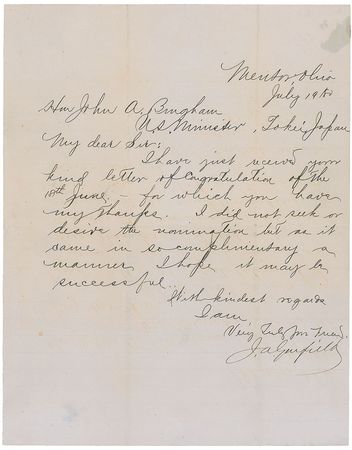 Mentor, Ohio
July 19 80
Hon John A. Bingham
US Minister, Tokei Japan
My dear Sir:
I have just received your
kind letter of Congratulation of the
18th June - for which you have
my thanks. I did not seek or
desire the nomination but as it
came in so complimentary a
manner I hope it may be
successful.
With kindest regards
I am
Very Truly Your Friend.
J. A. Garfield